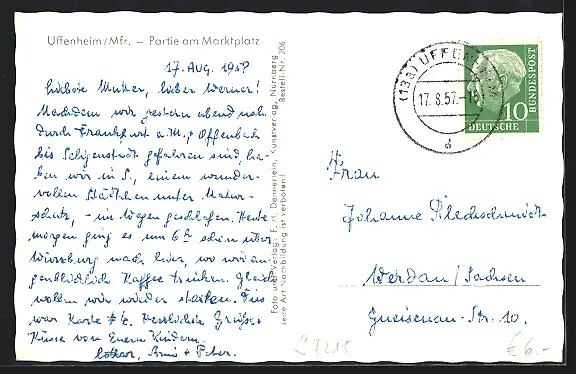 Uffenheim/Mfr. – Partie am Marktplatz
17. AUG. 195?
Liebste Mutter, lieber Werner!
Nachdem wir gestern abend noch
durch Frankfurt a.M. + Offenbach
bis Seligenstadt gefahren sind, ha-
ben wir in S., einem wunder-
vollen Städtchen unter Natur-
schutz, - im Wagen geschlafen. Heute
morgen ging es um 6h schon über
Würzburg nach hier, wo wir au-
genblicklich Kaffee trinken. Gleich
wollen wir wieder starten. Dies
war Karte Herzlichste Grüße +
Küsse von Euern Kindern
Lothar, + Peter.
Foto und Verlag: F. H. Dennerlein, Kunstverlag, Nürnberg
Jede Art Nachbildung ist verboten!
Bestell-Nr. 206
(13a) UFFENHEIM
17.8.57.-1
d
10
DEUTSCHE
BUNDESPOST
Frau
Johanne
Werdau/Sachsen
Gneisenau-Str. 10.
S 7215
€ 6.-